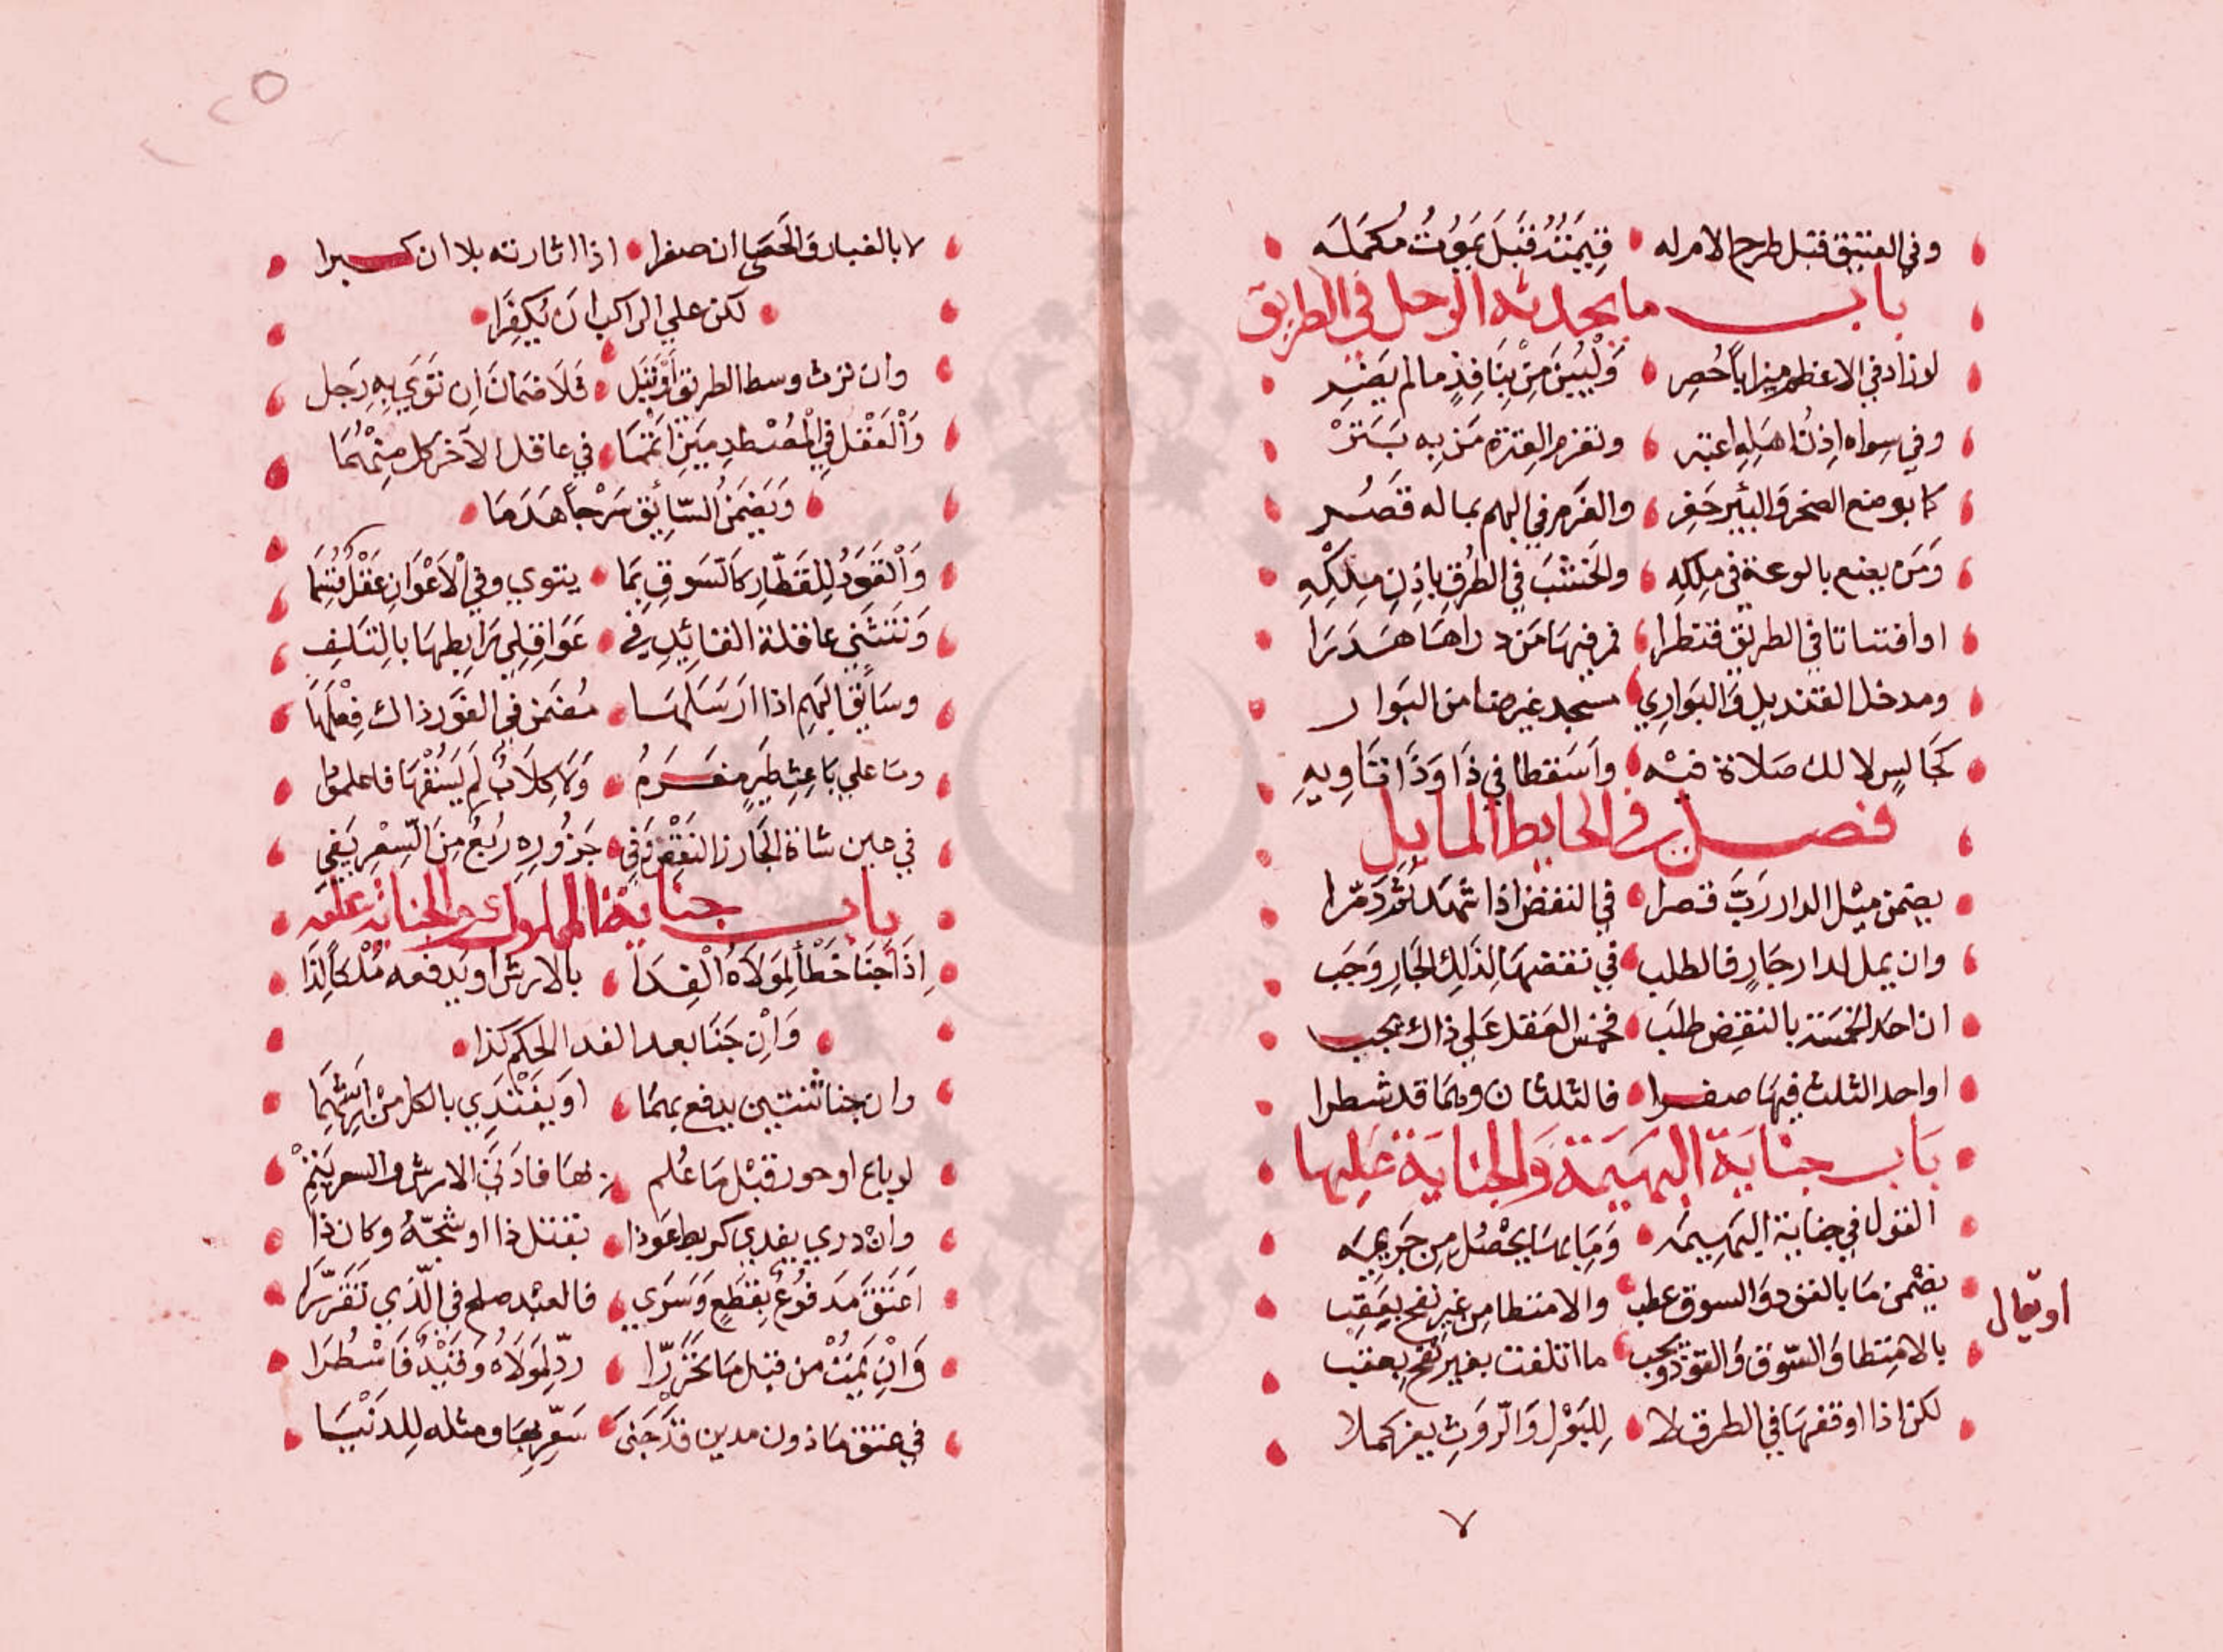 وفي العتيق قبل طرح الامر له قيمته قبل يموت مكمله
باب ما يحدثه الرجل في الطريق
لو زاد في الاعظم ميزابا حُصِر وليبين من بنافذ ما لم يضر
وفي سواه اذن اهله اعتبر وتغرم العترة من به
كما بوضع الصخر والبئير حفر والغرم في البهم بماله قصر
ومن يضع بالوعة في ملكه والخشب في الطرق باذن ملكه
او افتياتا في الطريق قنطرا فمر فيها من دراها هدرا
ومدخل القنديل والبواري مسجد غير ضامن البوار
كجالس لا لك صلاة فيه واسقطا في ذا وذا تاويه
فصل في الحايط المايل
يضمن ميل الدار رب قصرا في النقض اذا شهد ثم دمرا
وان يمل لدار جار فالطلب في نقضها لذلك الجار وجب
ان احد الخمسة بالنقض طلب فخمس العقل على ذاك يجب
او احد الثلث فيها حفرا فالثلثان وبما قد شطرا
باب جناية البهيمة والجناية عليها
القول في جناية البهيمه وما بها يحصل من جريمه
يضمن ما بالقود والسوق عطب والامتطا من غير نفح بعقب
او يقال
بالامتطا والسوق والقود وجب ما اتلفت بغير نفح بعقب
لكن اذا اوقفها في الطرق لا للبول والروث بغر كملا
٧
لا بالغبار والحصى ان صغرا اذا اثارته بلا ان كبرا
لكن علي الراكب ان يكفرا
وان ترث وسط الطريق او تبل فلا ضمان ان توي به رجل
والعقل في المصطدمين انتما في عاقل الآخر كل منهما
ويضمن السائق سرجا هدما
والقود للقطار كالسوق بما يتوي وفي الاعوان عقل قسما
وتنثني عاقلة القائد في عواقلي رابطها بالتلف
وسايق البهم اذا ارسلها مضمن في الفور ذاك فعلها
وما علي باعث طير مغرم ولا كلاب لم يسقها فاعلموا
في عين شاة الجارز النقص وفي جزوره ربع من السعر يفي
باب جناية المملوك والجناية عليه
اذا جنا خطأ لمولاه الفدا بالارش او يدفعه ملكا لذا
وان جنا بعد الفدا الحكم كذا
وان جنا ثنتين يدفع بهما او يفتدي بالكل من ارشهما
لو باع او حرر قبل ما علم بها فادنى الارش والسعر يتم
وان دري يفدي كربط عوذا بقتل ذا او شجه وكان ذا
اعتق مدفوع بقطع وسري فالعبد صلح في الذي تقررا
وان يمت من قبل ما تحررا رد لمولاه وقيد فاسطرا
في عتق ماذون مدين قد جنى سعر بها ومثله للدنيا